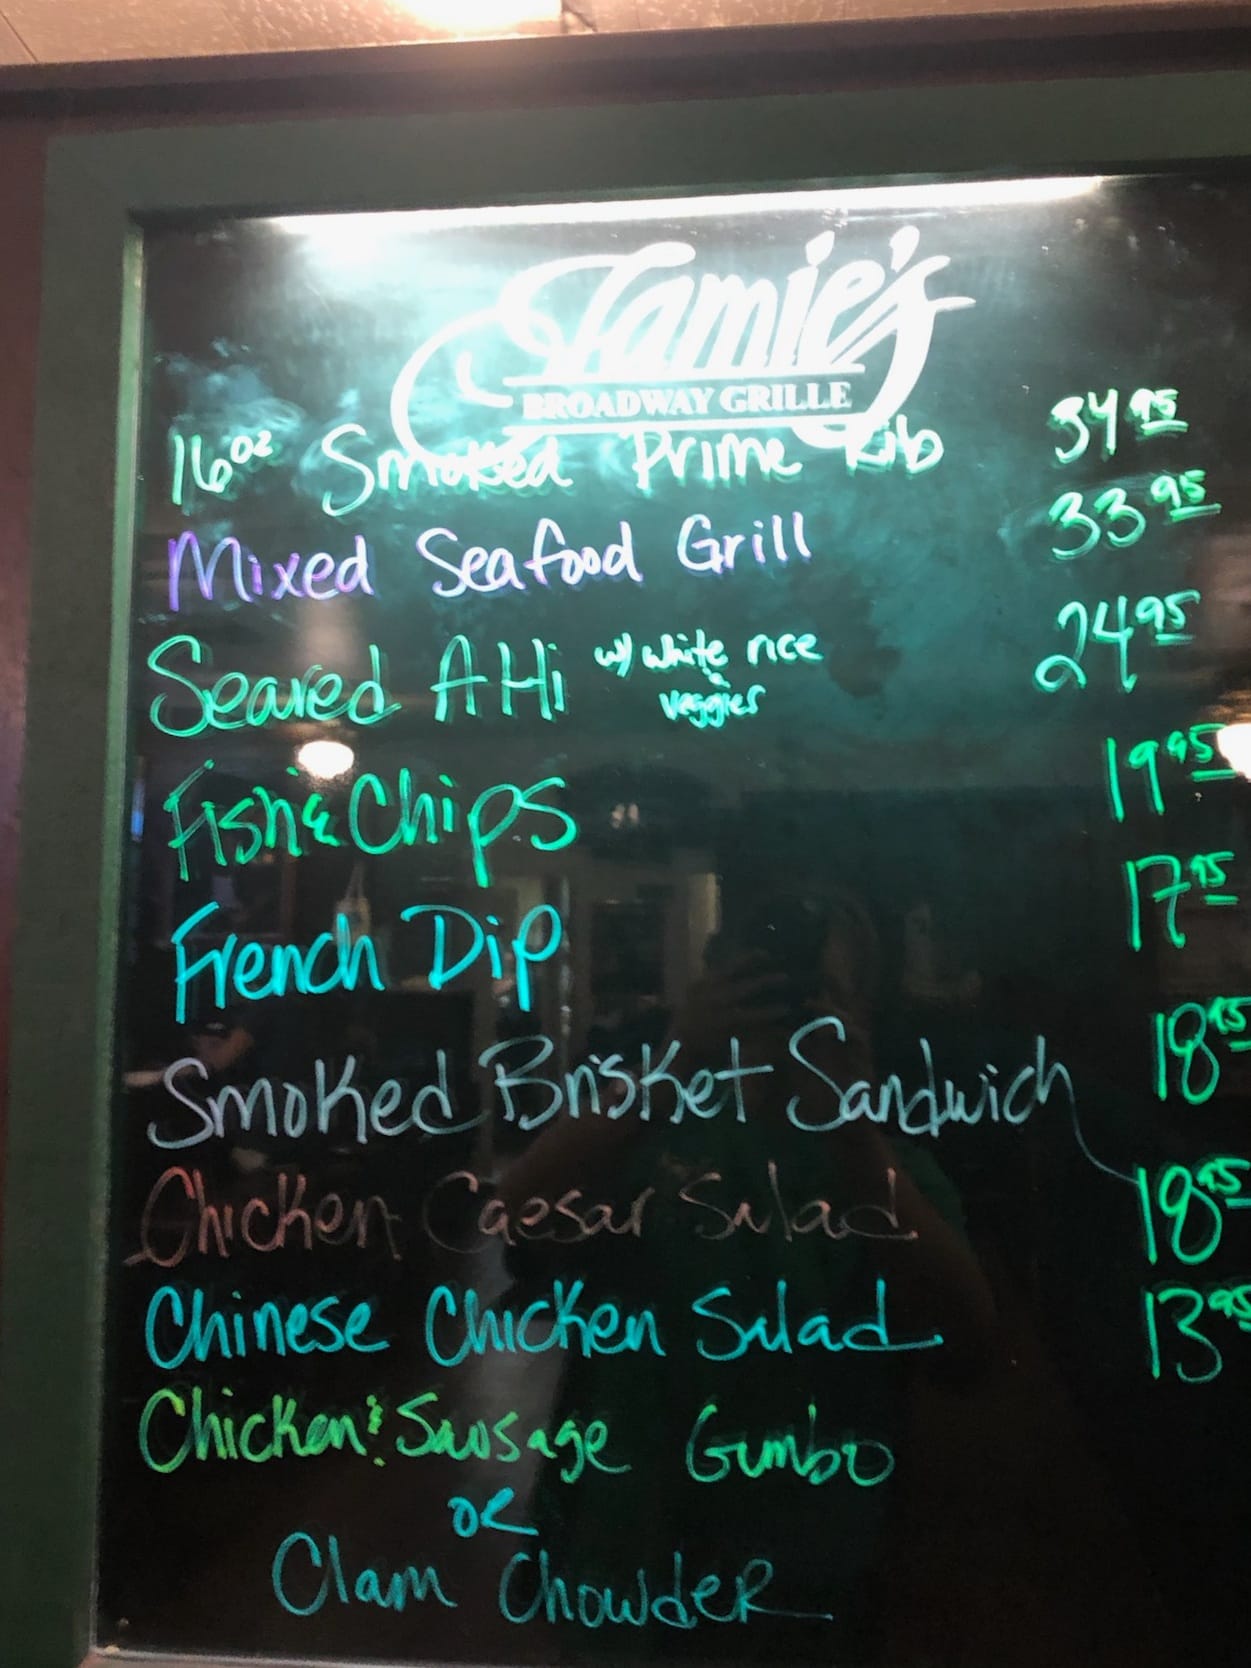 Jamie's
BROADWAY GRILLE
16oz Smoked Prime Rib 34 95
Mixed Seafood Grill 33 95
Seared AHi w/ white rice & veggies 24 95
Fish & Chips 19 95
French Dip 17 95
Smoked Brisket Sandwich 18 95
Chicken Caesar Salad 18 95
Chinese Chicken Salad 13 95
Chicken & Sausage Gumbo
OR
Clam ChowdeR